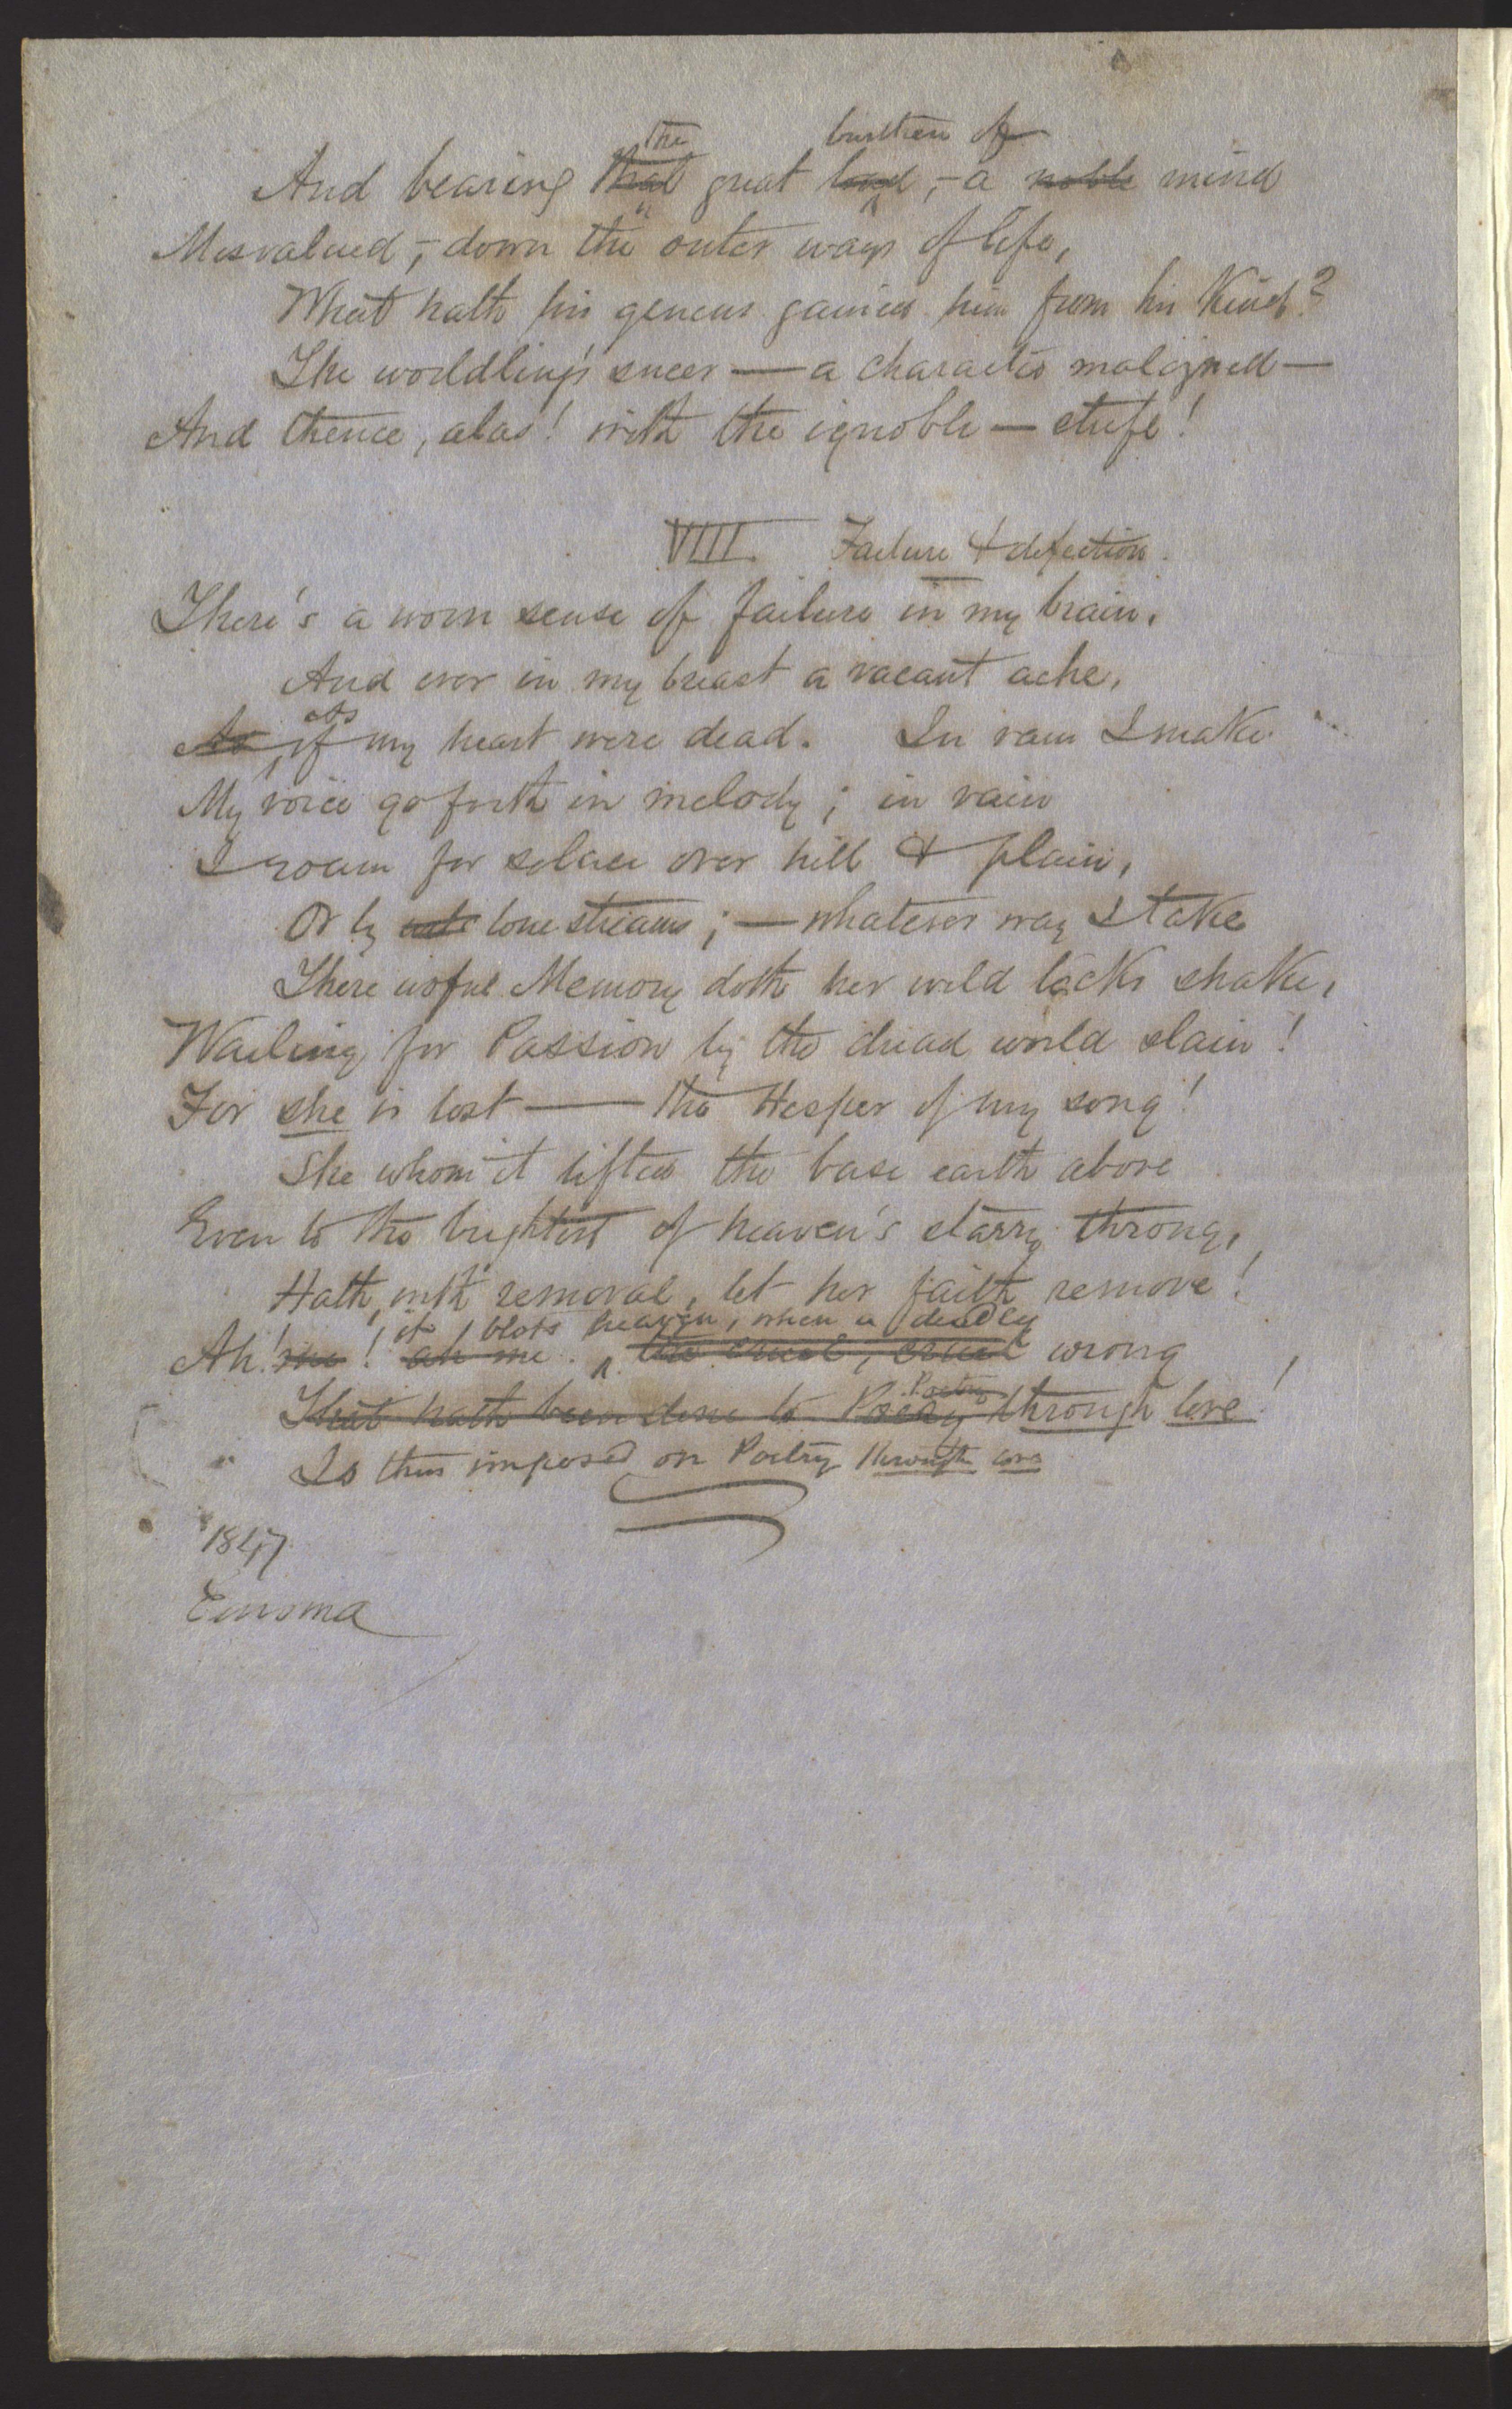 the burthen of
And bearing that great load,—a noble mind
Misvalued,—down the outer ways of life,
What hath his genius gained him from his Kind?
The worldling's sneer — a character maligned —
And thence, alas! with the ignoble — strife!
VIII. Failure & defection.
There's a worn sense of failure in my brain,
And ever in my breast a vacant ache,
as
As, if my heart were dead. In vain I make
My voice go forth in melody; in vain
I roam for solace over hill & plain,
Or by lone streams; — whatever way I take
There woful Memory doth her wild locks shake,
Wailing for Passion by the dread world slain!
For she is lost — the Hesper of my song!
She whom it lifted the base earth above
Even to the brightest of heaven's starry throng,
Hath, with removal, let her faith remove!
it blots heaven, when a deadly
Ah! me! ah me. the cruel, cruel wrong
Poetry
That hath been done to Poesy through love!
Is thus imposed on Poetry through love
1847